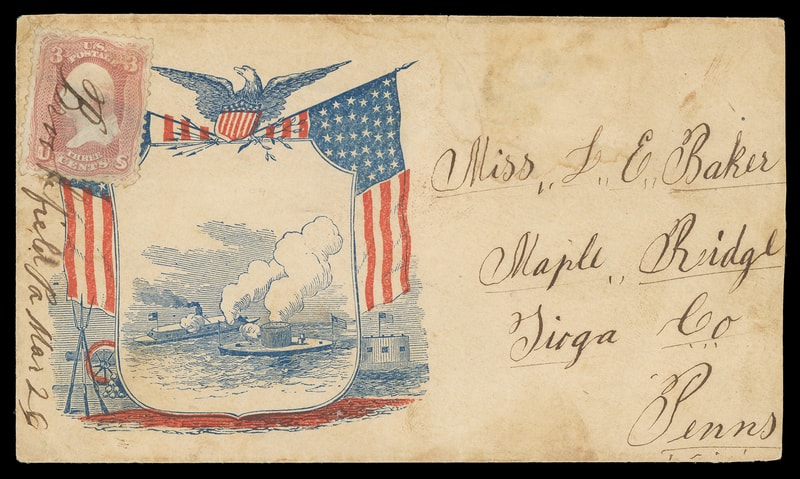 U.S.
POSTAGE
3 3
U S
THREE
CENTS
Pa Mar 28
Miss,, L,, E,, Baker
Maple,, Ridge
Tioga Co
Penns